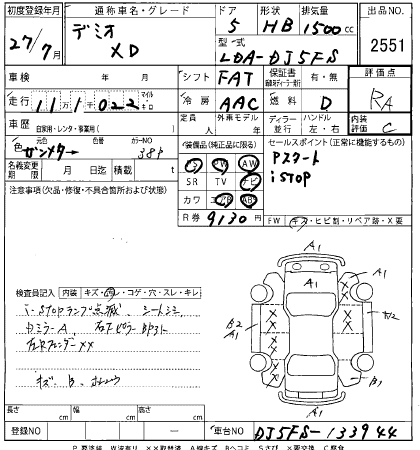 初度登録年月 通称車名・グレード ドア 形状 排気量 出品NO
27/7月 デミオ XD 5 HB 1500cc 2551
型式 LDA-DJ5FS
車検 年 月 シフト FAT 保証書 有・無 評価点 RA
走行 111,022 マイル キロ 冷房 AAC 燃料 D
車歴 自家用・レンタ・事業用( ) 定員 人 外車モデル 年 ディーラー 並行 ハンドル 左・右 内装評価 C
色 元色 ガンメタ 色番 カラーNO 38P
装備品(純正品に限る) セールスポイント(正常に機能するもの)
PS PW AW
SR TV ナビ
カワ エアB ABS
Pスタート
iSTOP
名義変更期限 月 日迄 積載 t
R券 9130円
FW キズ・ヒビ割・リペア跡・X要
注意事項(欠品・修復・不具合箇所および状態)
検査員記入 内装 キズ・ヨゴレ・コゲ・穴・スレ・キレ
i-STOPランプ点滅、シートシミ
カミラーA、右Fピラー
右Rフェンダー XX
キズ、B、
A1
A1
A1
A1
A2
B2
A1
B1
A1
長さ cm 幅 cm 高さ cm
登録NO ー 車台NO DJ5FS-133944
P要塗装 W波有り XX取替済 A線キズ Bヘコミ Sさび X要交換 C腐食